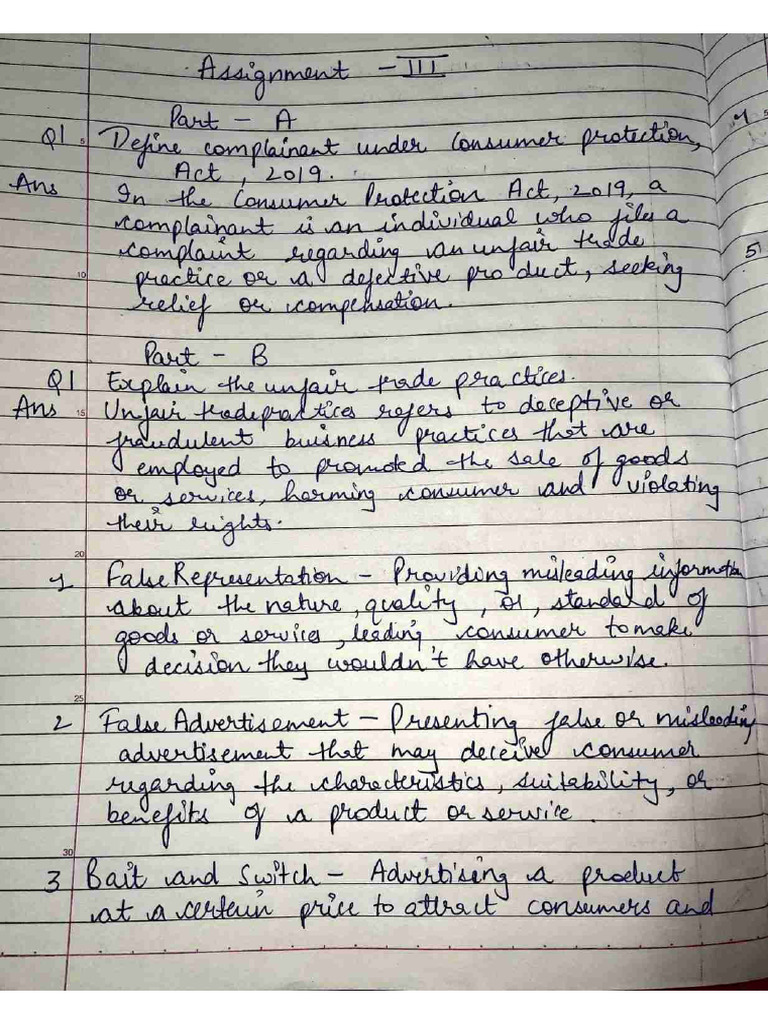 Assignment - III
Part - A
Q1 Define complainant under Consumer protection,
Act, 2019.
Ans In the Consumer Protection Act, 2019, a
complainant is an individual who files a
complaint regarding an unfair trade
practice or a defective product, seeking
relief or compensation.
Part - B
Q1 Explain the unfair trade practices.
Ans Unfair tradepractices refers to deceptive or
fraudulent business practices that are
employed to promoted the sale of goods
or services, harming consumer and violating
their rights.
1 False Representation - Providing misleading information
about the nature, quality, or, standard of
goods or service, leading consumer to make
decision they wouldn't have otherwise.
2 False Advertisement - Presenting false or misleading
advertisement that may deceive consumer
regarding the characteristics, suitability, or
benefits of a product or service.
3 Bait and Switch - Advertising a product
at a certain price to attract consumers and
5
10
15
20
25
30
5